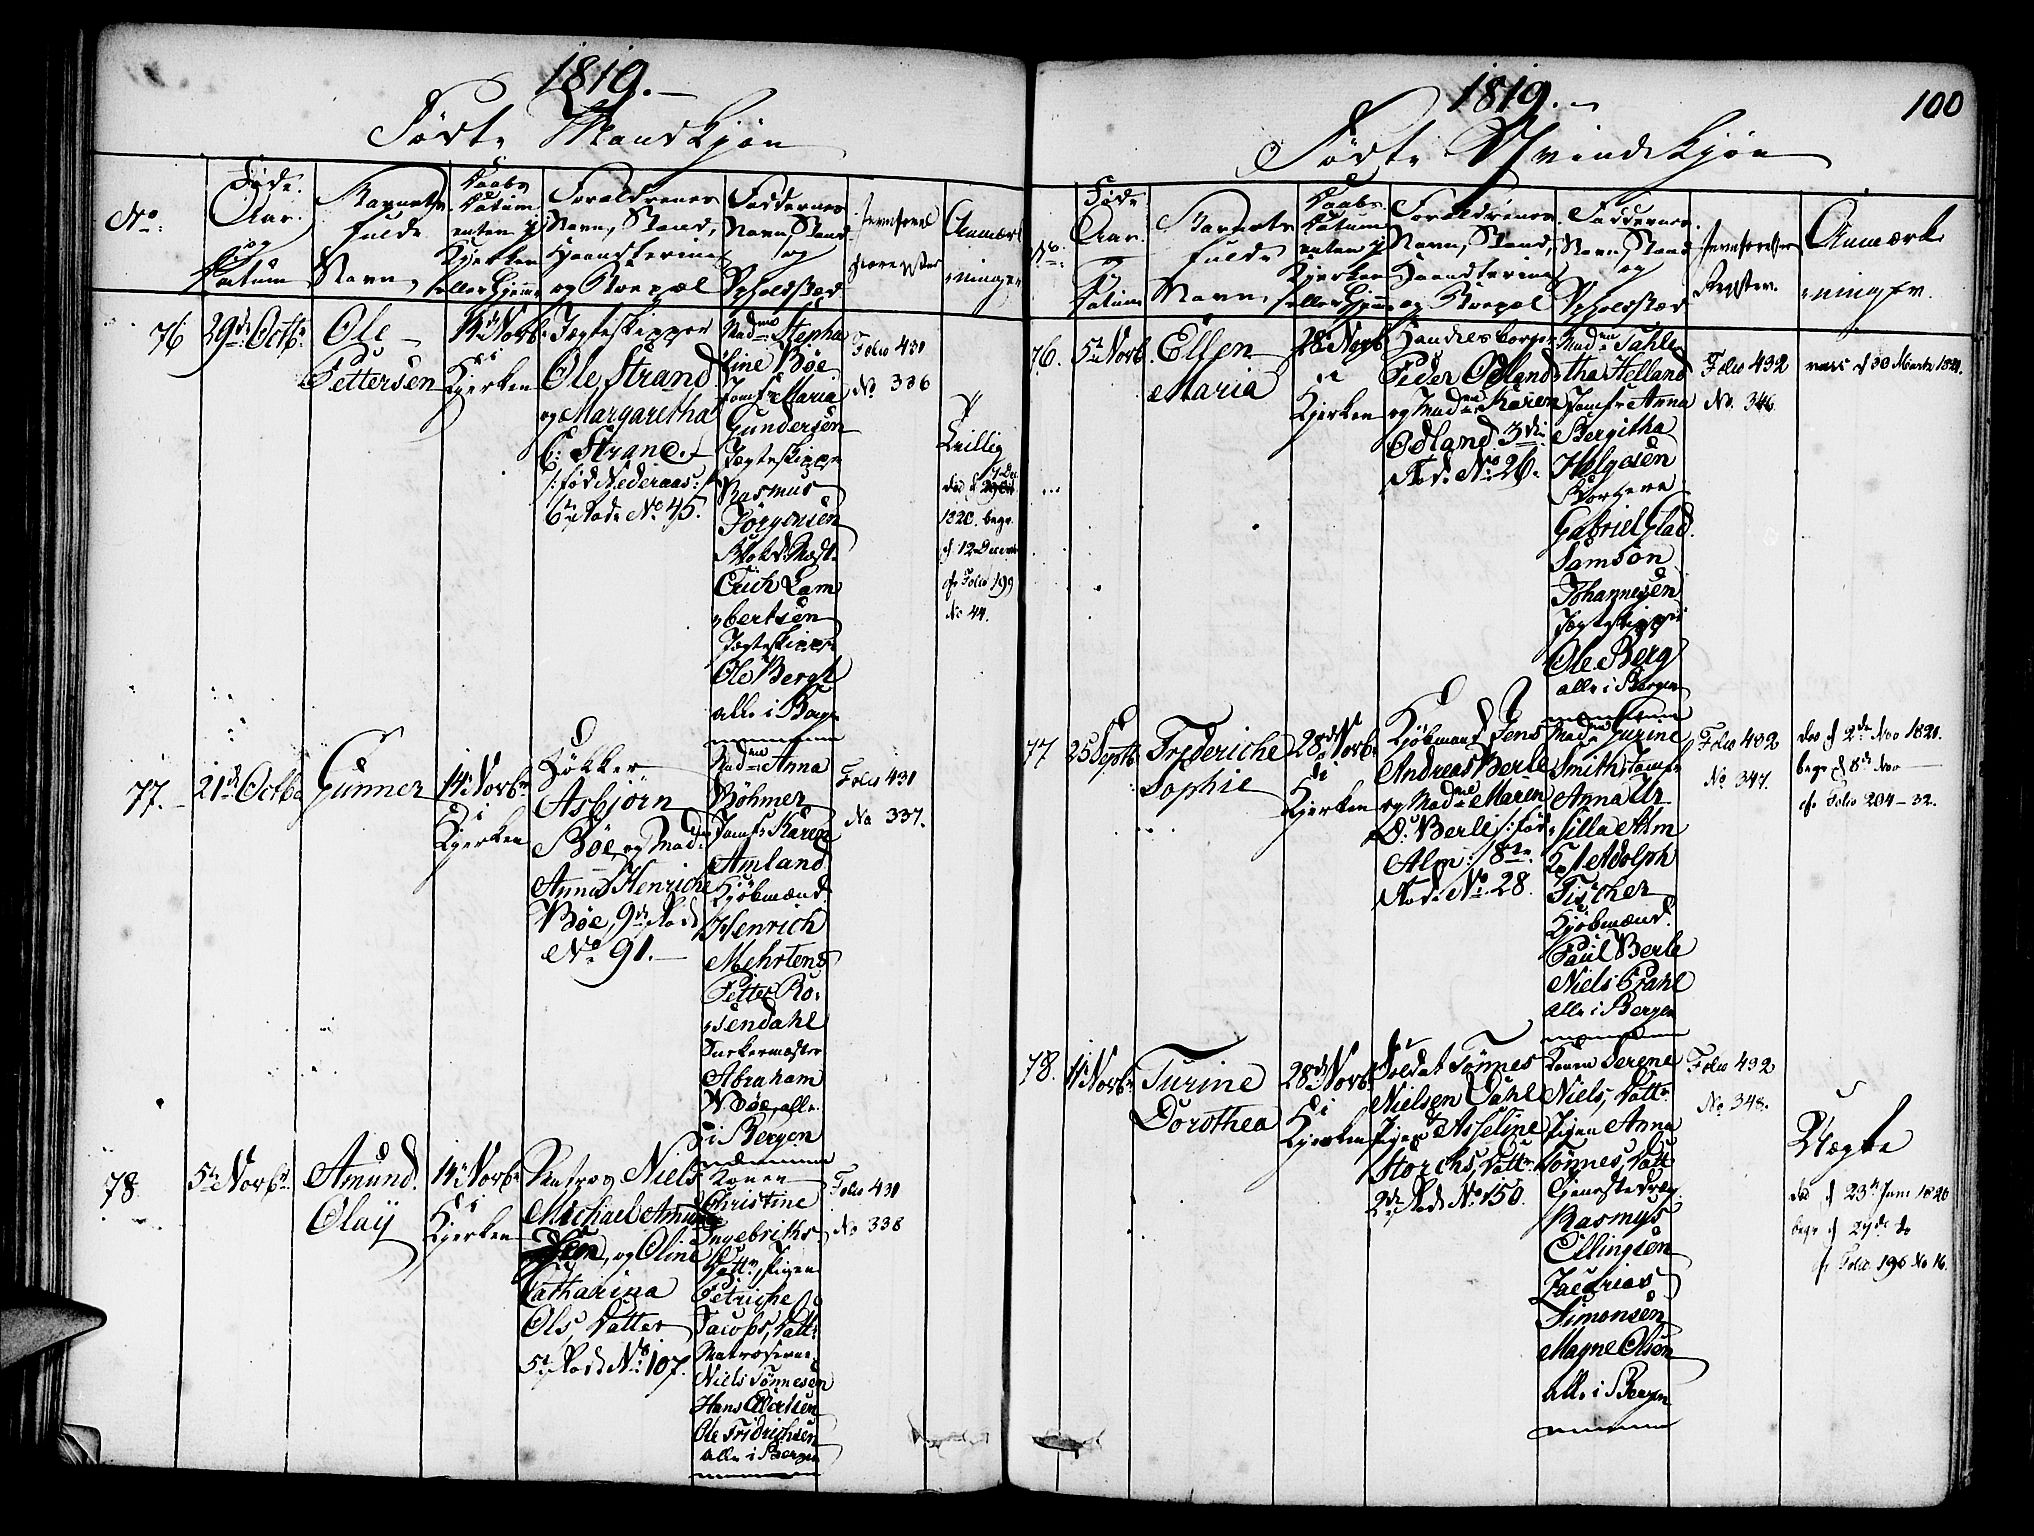 1819.
Fødte Mandkjøn
No:
Føde
Aar
og
Datum
Barnets
fulde
Navn,
Daabs
Datum
enten i
Kjerken
eller Hjemme
Forældrenes
Navn, Stand,
Haandtering
og Boepæl
Faddernes
Navn, Stand
og
Opholdsted
Jevnførelses
Register
Anmærk
ninger
76
29de Octbr
Ole
Pettersen
i
Kjerken
Jægteskipper
Ole Strand
og Margaretha
C: Strand
/: fød Nederaas :/
6te Rode No 45.
Madme Stepha
line Bøe
Jomfr Maria
Gundersen
Jægteskippr
Rasmus
Jørgensen
Erich Lam
bertsen
Jægteskippr
Ole Bergt
alle i Bergen
Folio 431
No 336
Tvilling
død d
1820. begr.
d 12 Decembr
cfr Folio 199
No 44.
77.
21de Octbr
Gunner
14de Novbr
i
Kjerken
Bøkker
Asbjørn
Bøe, og Mad:
Anna Henriche
Bøe, 9de Rode
No 91.
Madme Anna
Böhmer
Jomfr Karen
Amland
Kjøbmænd
Henrich
Mehrtens
Petter Ro,
sendahl
Abraham
Bøe, alle
i Bergen
Folio 431
No 337.
78
5te Novbr
Amund
Olaÿ
14de Novbr
i
Kjerken
Matros Niels
Michael Amund
sen, og Oline
Catharina
Ols, Datter
5te Rode No 107.
Konen
Christine
Ingebriks
Dattr, Pigen
Petriche
Jacobs, Datt:
Matroserne
Niels Tönnesen
Hans Olertsen
Ole Fridrichsen
alle i Bergen
Folio 431
No 338
1819.
100
Fødte Qvindekjøn
No:
Føde
Aar
og
Datum
Barnets
fulde
Navn,
Daabs
Datum
enten i
Kjerken
eller Hjemme
Forældrenes
Navn, Stand,
Haandtering
og Boepæl
Faddernes
Navn, Stand
og
Opholdsted
Jevnførelses
Register.
Anmærk
ninger.
76.
5te Novb
Ellen
Maria
28de Novb
i
Kjerken
Handelsborger
Peder Ödland
og Madme Karen
Ödland 3die
Rode No 26.
Madme Tahle
tha Helland
Jomfr Anna
Bergitha
Helgesen
Gabriel Glad
Samson
Johannesen
Jægteskippr
Ole Berg
alle i Bergen
Folio 432
No. 346
vacc d 30 Marts 1821.
77
25 Septb
Friderliche
Sophie
28de Novb
i
Kjerken
Kjøbmand Jens
Andreas Berle
og Madme Maren
D: Berle /: fød
Alm :/ 8de
Rode No. 28.
Madme Jurine
Smith, Jomfr
Anna Ur
silla Alm
Kpt Adolph
Fischer
Kjøbmænd
Paul Berle
Niels Prahl
alle i Bergen
Folio 432
No 347.
død d 2de Nov 1821.
begr d 8de Nov
cfr Folio 204 – 32.
78.
11te Novbr
Turine
Dorothea
28de Novb
i
Kjerken
Soldat Tönnes
Nielsen Dahl
Pigen Asseline
Storchs, Dattr
2de Rode No 150.
Konen Serene
Niels, Dattr
Pigen Anna
Tönnes, Datt
Tjenestedrng
Rasmus
Ellingsen
Zacarias
Simonsen
Magne Olsen
alle i Bergen
Folio 432
No 348.
Uægte
død d 23de Juni 1820
begr d 29de do
cfr Folio 196 No 16.